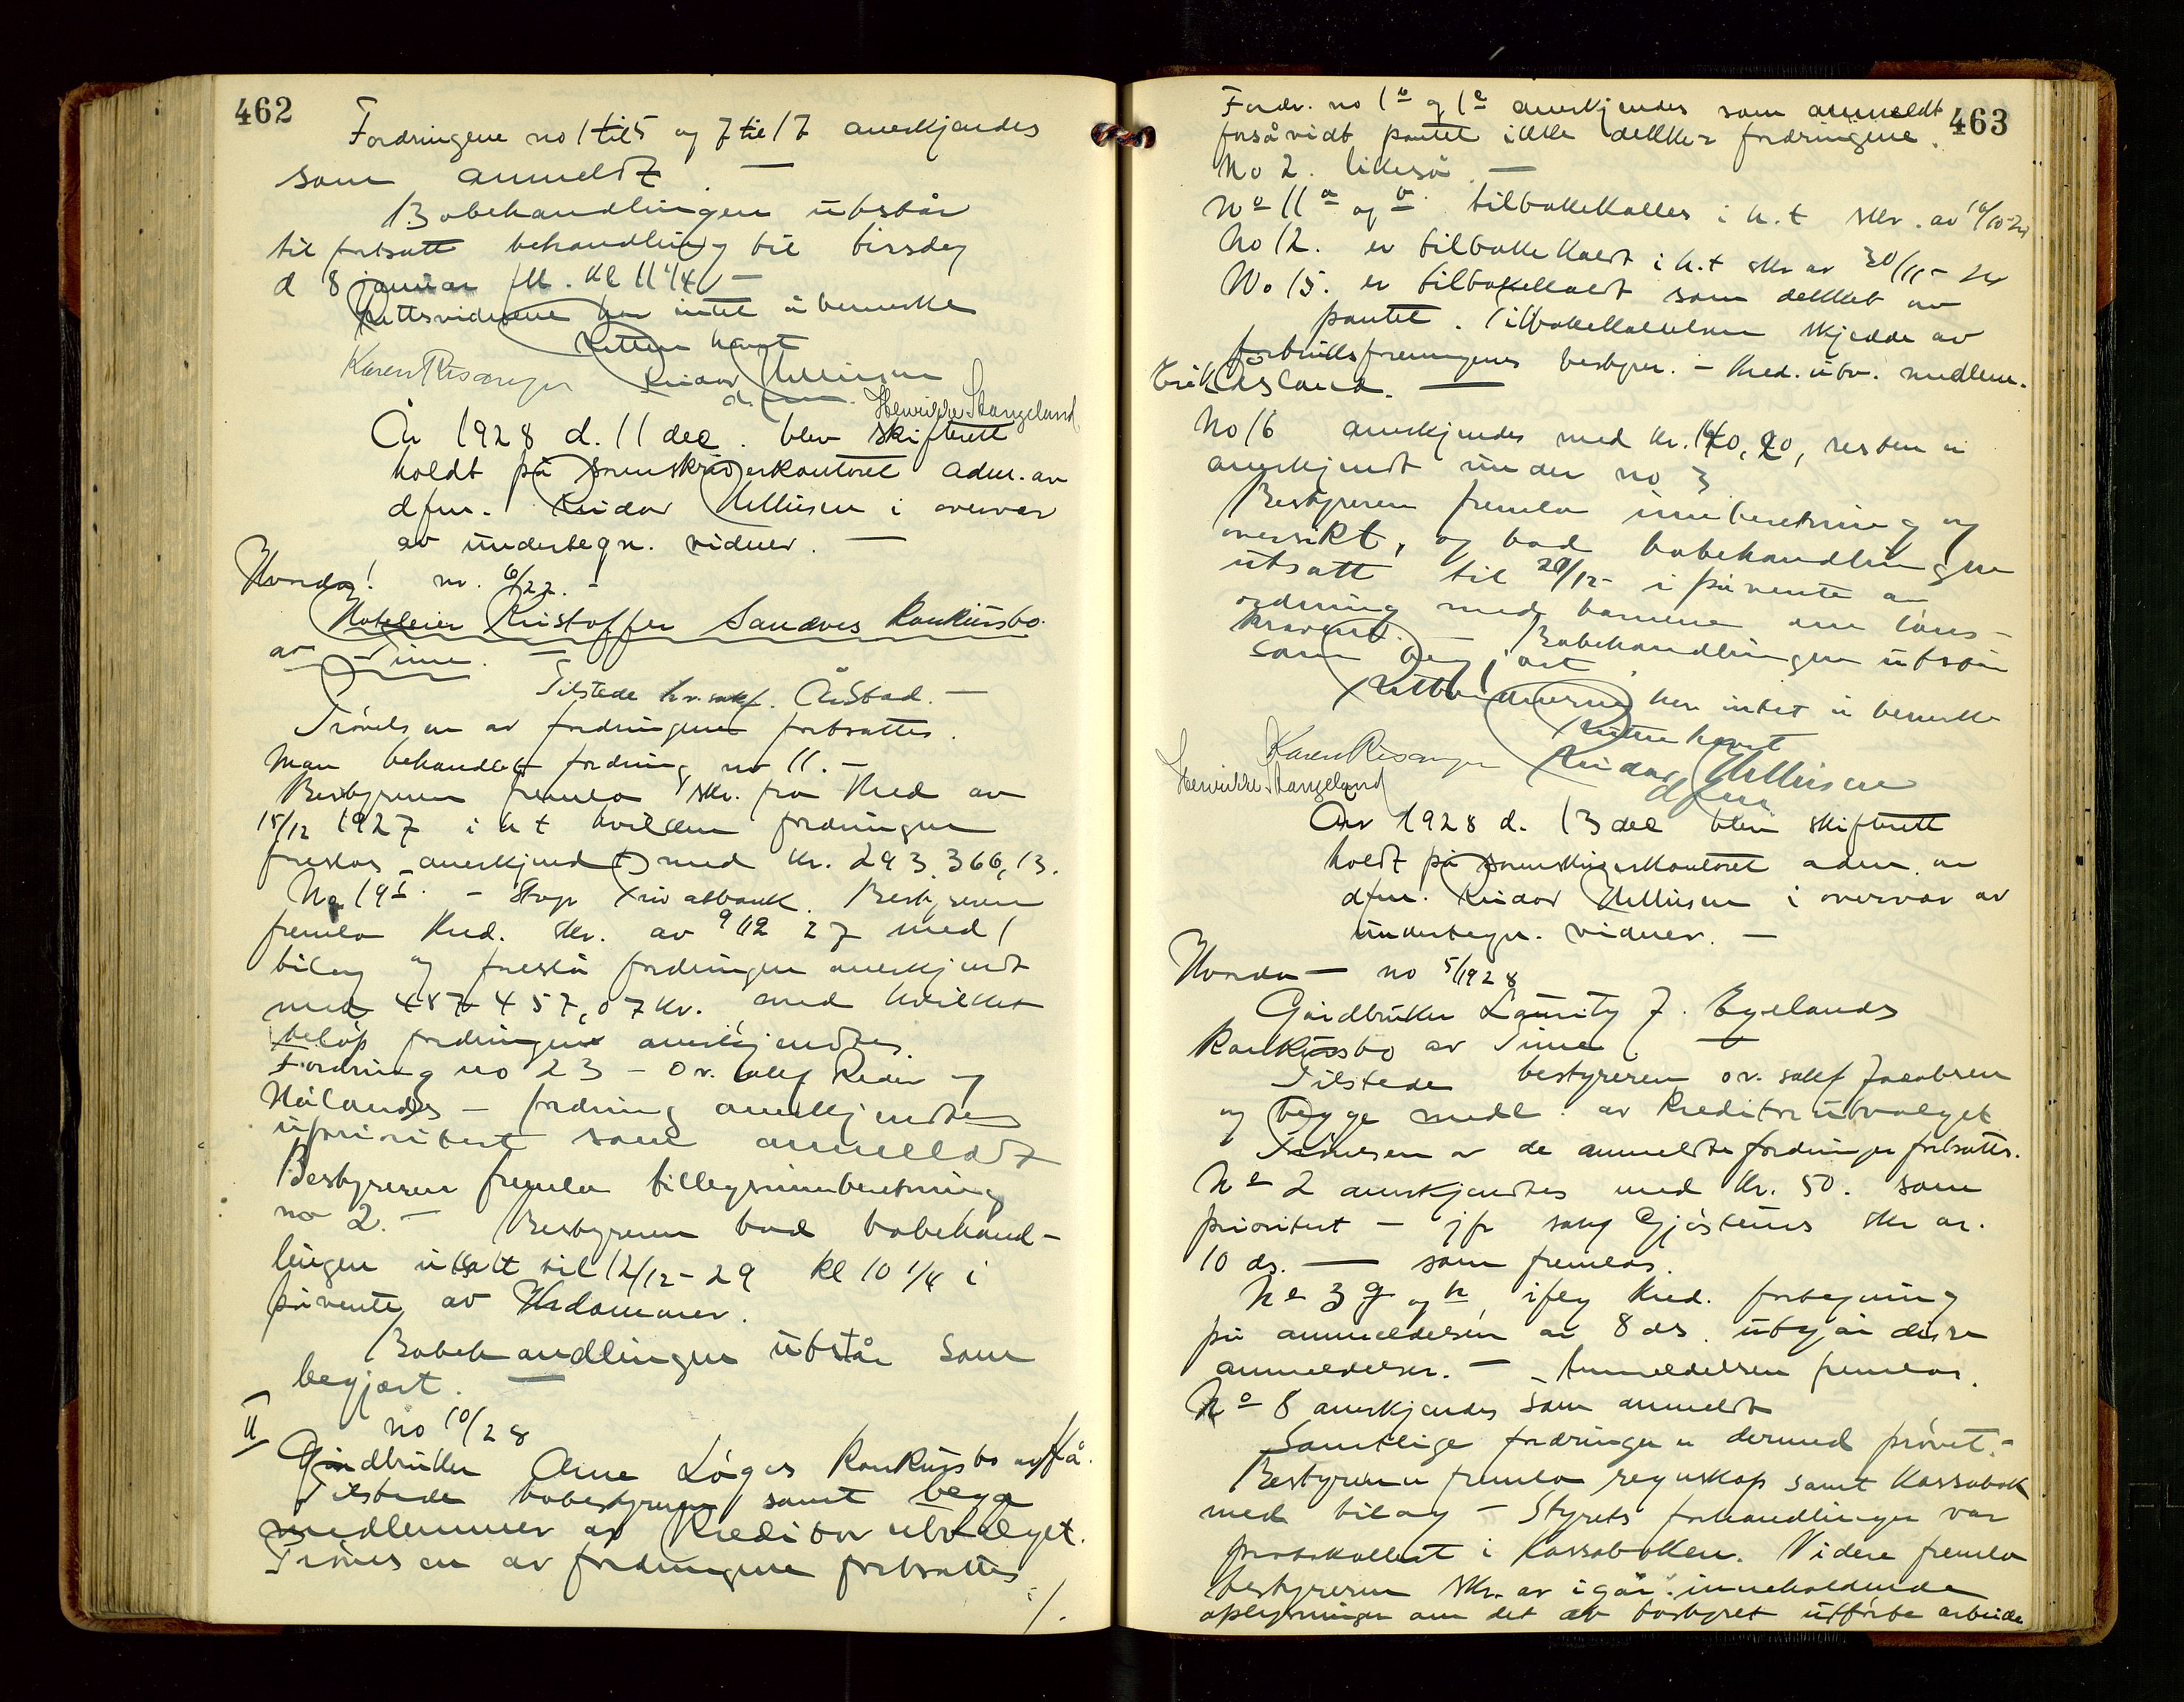 462
Fordringene no 1 til 5 og 7 til 17 anerkjendes
som anmeldt. —
Bobehandlingen utstår
til fortsatt behandling til tirsdag
d 8 januar fk. kl 11 1/4 —
Rettsvidnene har intet å bemerke
Retten hævt
Karen Risanger Reidar Mellusen
dfm. Henrikke Stangeland
År 1928 d. 11 dec. blev skifterett
holdt på sorenskriverkontoret adm. av
dfm. Reidar Mellusen i overvær
av undertegn. vidner. —
Hvorda! nr. 6/22. -
Hoteleier Kristoffer Sandves konkursbo
av Time. —
Tilstede hr. sakf. Årstad. —
Prøvelsen av fordringene fortsattes.
Man behandlet fordring no 11. —
Bestyreren fremla skr. fra Kred av
15/12 1927 i h t hvilken fordringen
foreslås anerkjendt med kr. 293.366,13.
No 19 I. - Stvgr Privatbank. Bestyreren
fremla Kred. skr. av 9/12 27 med 1
bilag og foreslå fordringen anerkjendt
med 487 457,07 kr. med hvilket
beløp fordringen anerkjendtes.
Fordring no 23 - o.r. sakf Reder og
Hålands - fordring anerkjendtes
uprioritert som anmelldt
Bestyreren fremla tilleggsinnberetning
no 2. — Bestyreren bad bobehand-
lingen utsatt til 12/12 - 29 kl 10 1/4 i
påvente av
Bobehandlingen utstår som
begjært. —
II no 10/28
Gårdbruker Arne Løges konkursbo av Hå.
Tilstede bobestyreren samt begge
medlemmer av Kreditorutvalget.
Prøvelsen av fordringene fortsattes
./.
463
Fordr. no 1 b og 1 c anerkjendes som anmeldt
forsåvidt pantet ikke dekker fordringene.
No 2. likeså. —
No 11 a og b. tilbakekalles i h.t skr. av
No 12. er tilbakekaldt i h.t skr av 30/11 - 28
No 15. er tilbakekaldt som dekket av
pantet. Tilbakekallelsen skjedde av
forbruksforeningens bestyrer. - Kred. utv. medlem.
Erik Åsland. —
No 16 anerkjendes med kr. 140,20, resten er
anerkjendt under no 3
Bestyreren fremla innberetning og
oversikt, og bad bobehandlingen
utsatt til 20/12 - i påvente av
ordning med bankene om løns-
kravene. — Bobehandlingen utstår
som begjært
Rettsvidnerne har intet å bemerke
Retten hævt
Karen Risanger Reidar Mellusen
Henrikke Stangeland dfm
År 1928 d. 13 dec blev skifterett
holdt på sorenskriverkontoret adm. av
dfm. Reidar Mellusen i overvær av
undertegn. vidner. —
Hvorda — no 5/1928
Gårdbruker Lauritz J. Egelands
konkursbo av Time. —
Tilstede bestyreren o.r. sakf Jacobsen
og begge medl. av kreditorutvalget
Prøvelsen av de anmeldte fordringer fortsattes.
No 2 anerkjendtes med kr. 50. som
prioritert — jfr sakf Gjøsteins skr av.
10 ds. — som fremlas.
No 3 g og h, iføg Kred. forteigning
på anmeldelsen av 8 ds. utgår disse
anmeldelser. — Anmeldelsen fremlas.
No 8 anerkjendes som anmeldt
Samtlige fordringer er dermed prøvet. -
Bestyreren fremla regnskap samt kassabok
med bilag — Styrets forhandlinger var
protokollert i kassaboken. Videre fremla
bestyreren skr. av igår inneholdende
oplysninger om det av bostyret utførte arbeide